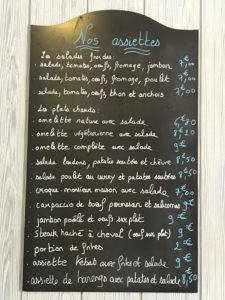 Nos assiettes
Les salades froides:
. salade, tomates, oeufs, fromage, jambon 7,00
. salade, tomates, oeufs, fromage, poulet 7,00
. salade, tomates, oeufs, thon et anchois
Les plats chauds:
. omelette nature avec salade
. omelette végétarienne avec salade
. omelette complète avec salade 9€
. salade lardons, patates sautées et chèvre 8€50
. salade poulet au curry et patates sautées
. croque-monsieur maison avec salade 7,00
. carpaccio de boeuf parmesan et salade 9€
. jambon poêlé et oeufs sur plat 9€
. steak haché à cheval (oeuf sur plat) 9€
. portion de frites 2€
. assiette kebab avec frites et salade 9€
. assiette de harengs avec patates et salade 8,50